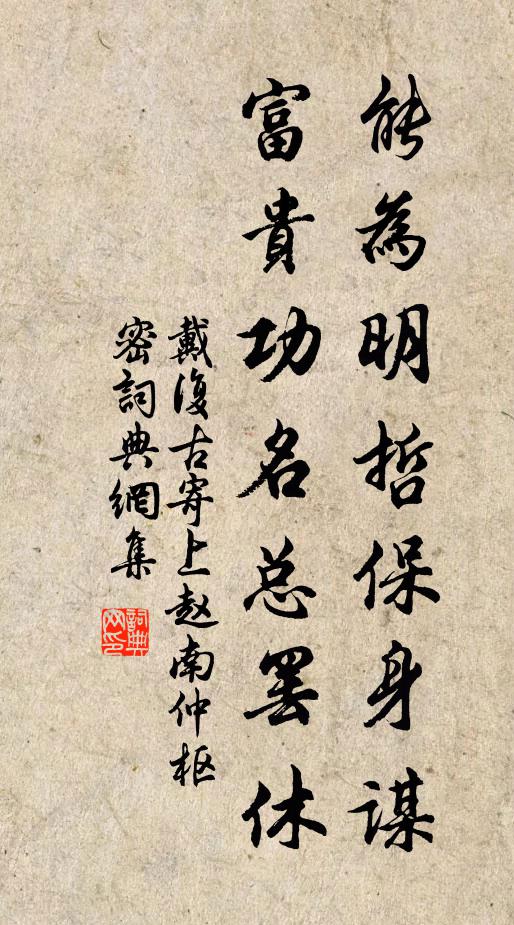 能為明哲保身謀
富貴功名总罢休
戴復古寄上赵南仲枢
密詞典網集
詞典网印